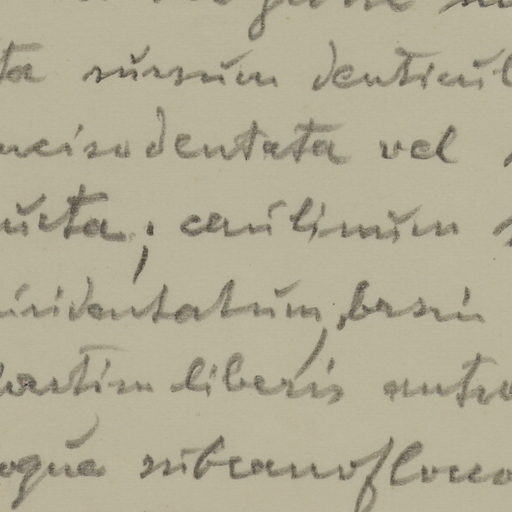 ta sursum denticul
inciso dentata vel
ucta; caulinum
iridentatum, basin
partim liberis
oqua subcanoflocco